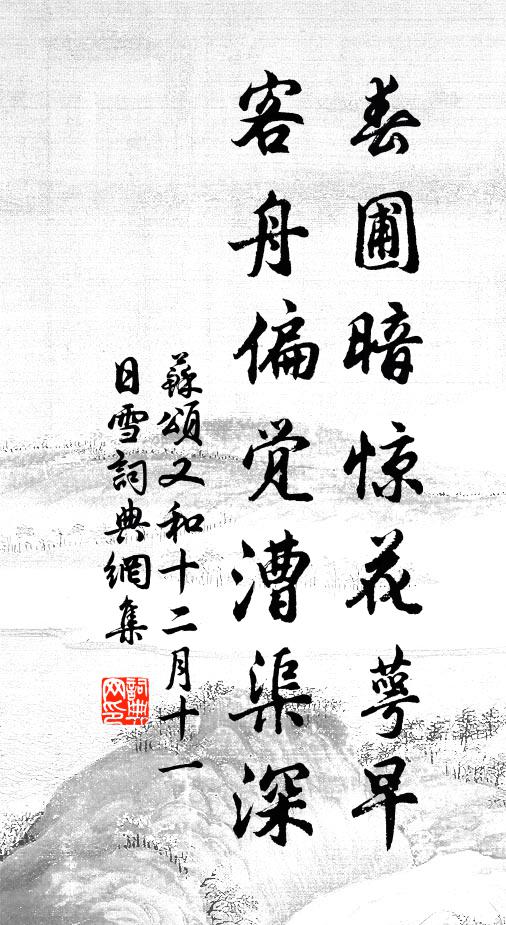 春圃暗惊花萼早
客舟偏觉漕渠深
蘇頌又和十二月十一
日雪詞典網集
詞典網印